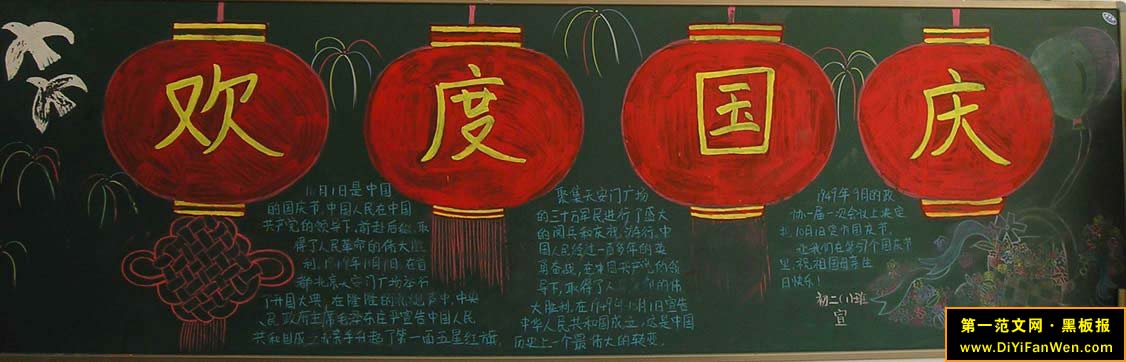 欢度国庆
10月1日是中国
的国庆节,中国人民在中国
共产党的领导下,前赴后继,取
得了人民革命的伟大胜
利。1949年10月1日,在首
都北京天安门广场举行
了开国大典,在隆隆的礼炮声中,中央
人民政府主席毛泽东庄严宣告中国人民
共和国成立,并亲手升起了第一面五星红旗,
聚集天安门广场
的三十万军民进行了盛大
的阅兵和庆祝游行。中
国人民经过一百多年的英
勇奋战,在中国共产党的领
导下,取得了人民革命的伟
大胜利。在1949年10月1日宣告
中华人民共和国成立,这是中国
历史上一个最伟大的转变。
1949年9月的政
协一届一次会议上决定
把10月1日定为国庆节。
让我们在第57个国庆节
里,祝祖国母亲生
日快乐!
初二(1)班
宣
第一范文网·黑板报
www.DiYiFanWen.com